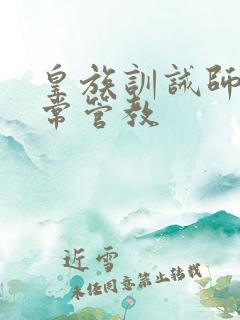 皇族訓誡師
常管教
近雪
未经同意禁止转载